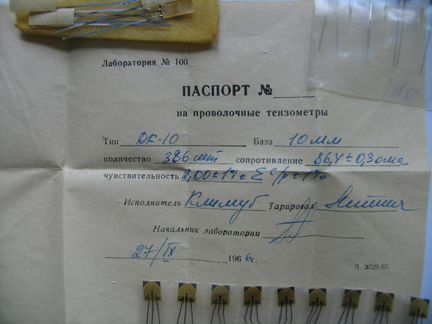 Лаборатория № 100
ПАСПОРТ №
на проволочные тензометры
Тип ДК-10 База 10 мм
количество 386 шт сопротивление 86,4 ± 0,3 ома
чувствительность 2,00 ± 1%
Исполнитель Климуб Тарировал
Начальник лаборатории
27/IX 1966 г.